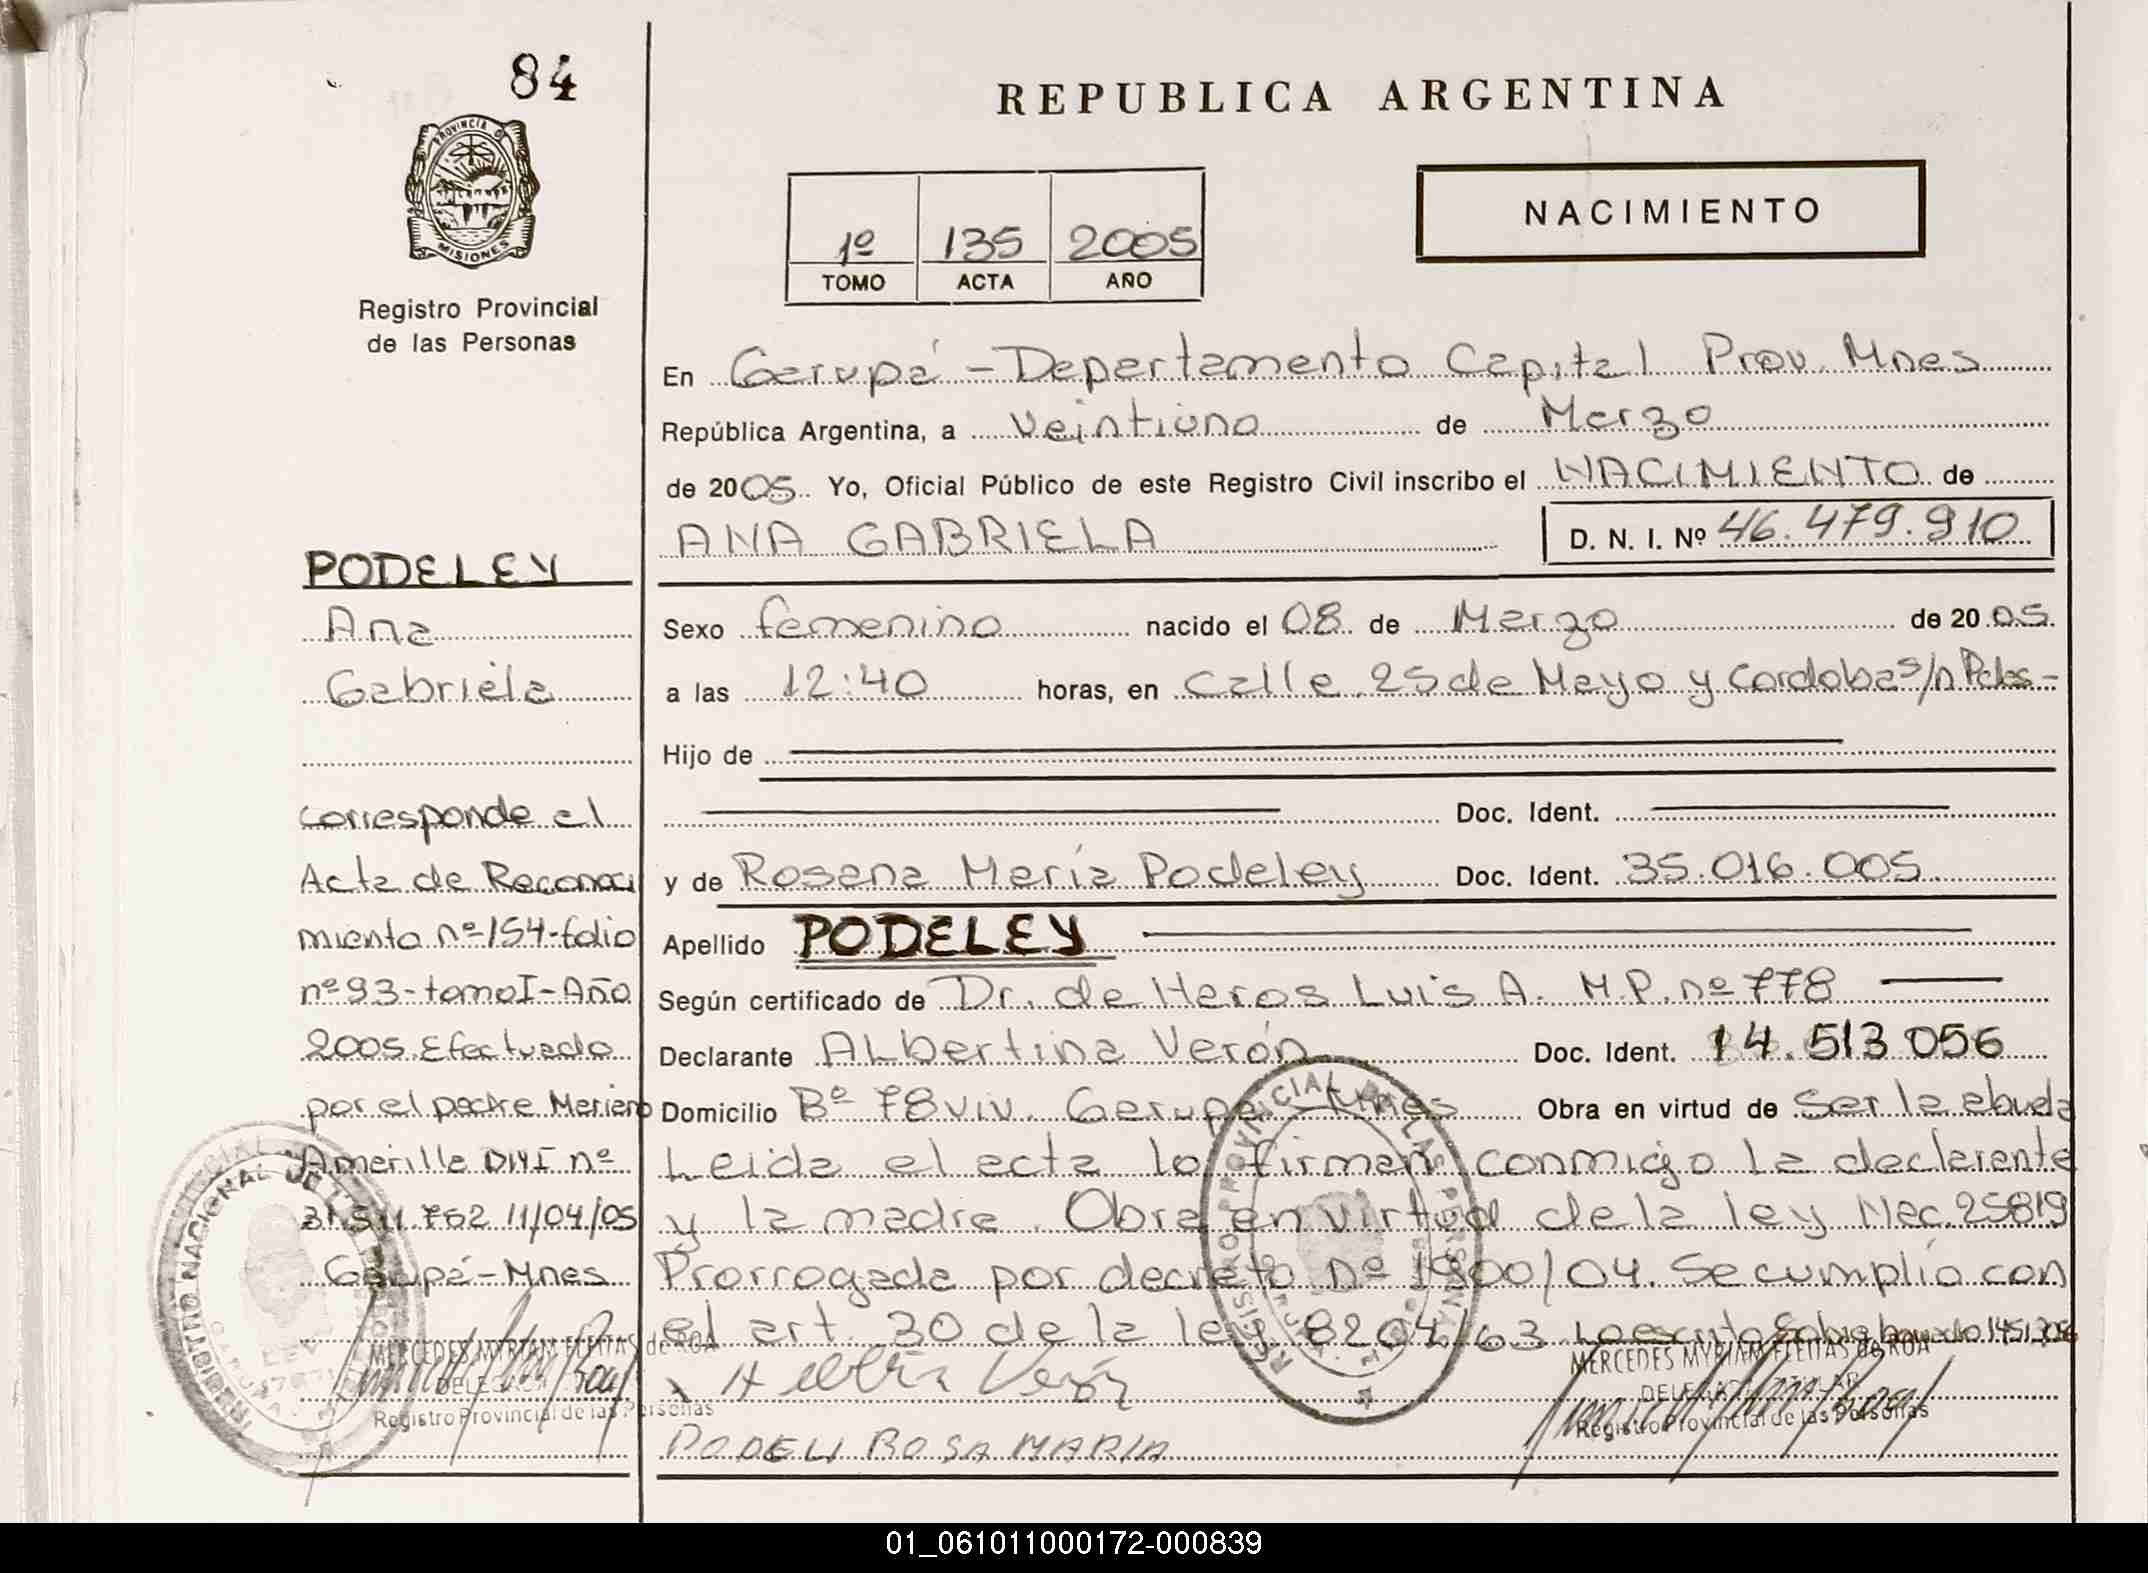 84
PROVINCIA DE
MISIONES
Registro Provincial
de las Personas
REPUBLICA ARGENTINA
1º 135 2005
TOMO ACTA AÑO
NACIMIENTO
En Garupá - Departamento Capital Prov. Mnes
República Argentina, a veintiuno de Marzo
de 2005 Yo, Oficial Público de este Registro Civil inscribo el NACIMIENTO de
ANA GABRIELA D. N. I. Nº 46.479.910
Sexo femenino nacido el 08 de Marzo de 2005.
a las 12:40 horas, en Calle 25 de Mayo y Cordoba s/n Pdas-
Hijo de
Doc. Ident.
y de Rosana María Podeley Doc. Ident. 35.016.005
Apellido PODELEY
Según certificado de Dr. de Heros Luis A. M.P. nº 778
Declarante Albertina Verón Doc. Ident. 14.513 056
Domicilio Bº 78 viv. Garupá - Mnes Obra en virtud de Ser la abuela
Leida el acta lo firman conmigo la declarante
y la madre. Obra en virtud de la ley Nac. 25819
Prorrogada por decreto nº 1900/04. Se cumplío con
el art. 30 de la ley 8204/63 Lo escrito Sobre borrado
Verón
PODELI ROSA MARIA
MERCEDES MYRIAM FLEITAS de ROA
Registro Provincial de las Personas
PODELEY
Ana
Gabriela
corresponde el
Acta de Reconoci
miento nº 154-folio
nº 93-tomo I-Año
2005. Efectuado
por el padre Mariano
Amarilla DNI nº
31.511.762 11/04/05
Garupá-Mnes
MERCEDES MYRIAM FLEITAS de ROA
Registro Provincial de las Personas
01_061011000172-000839